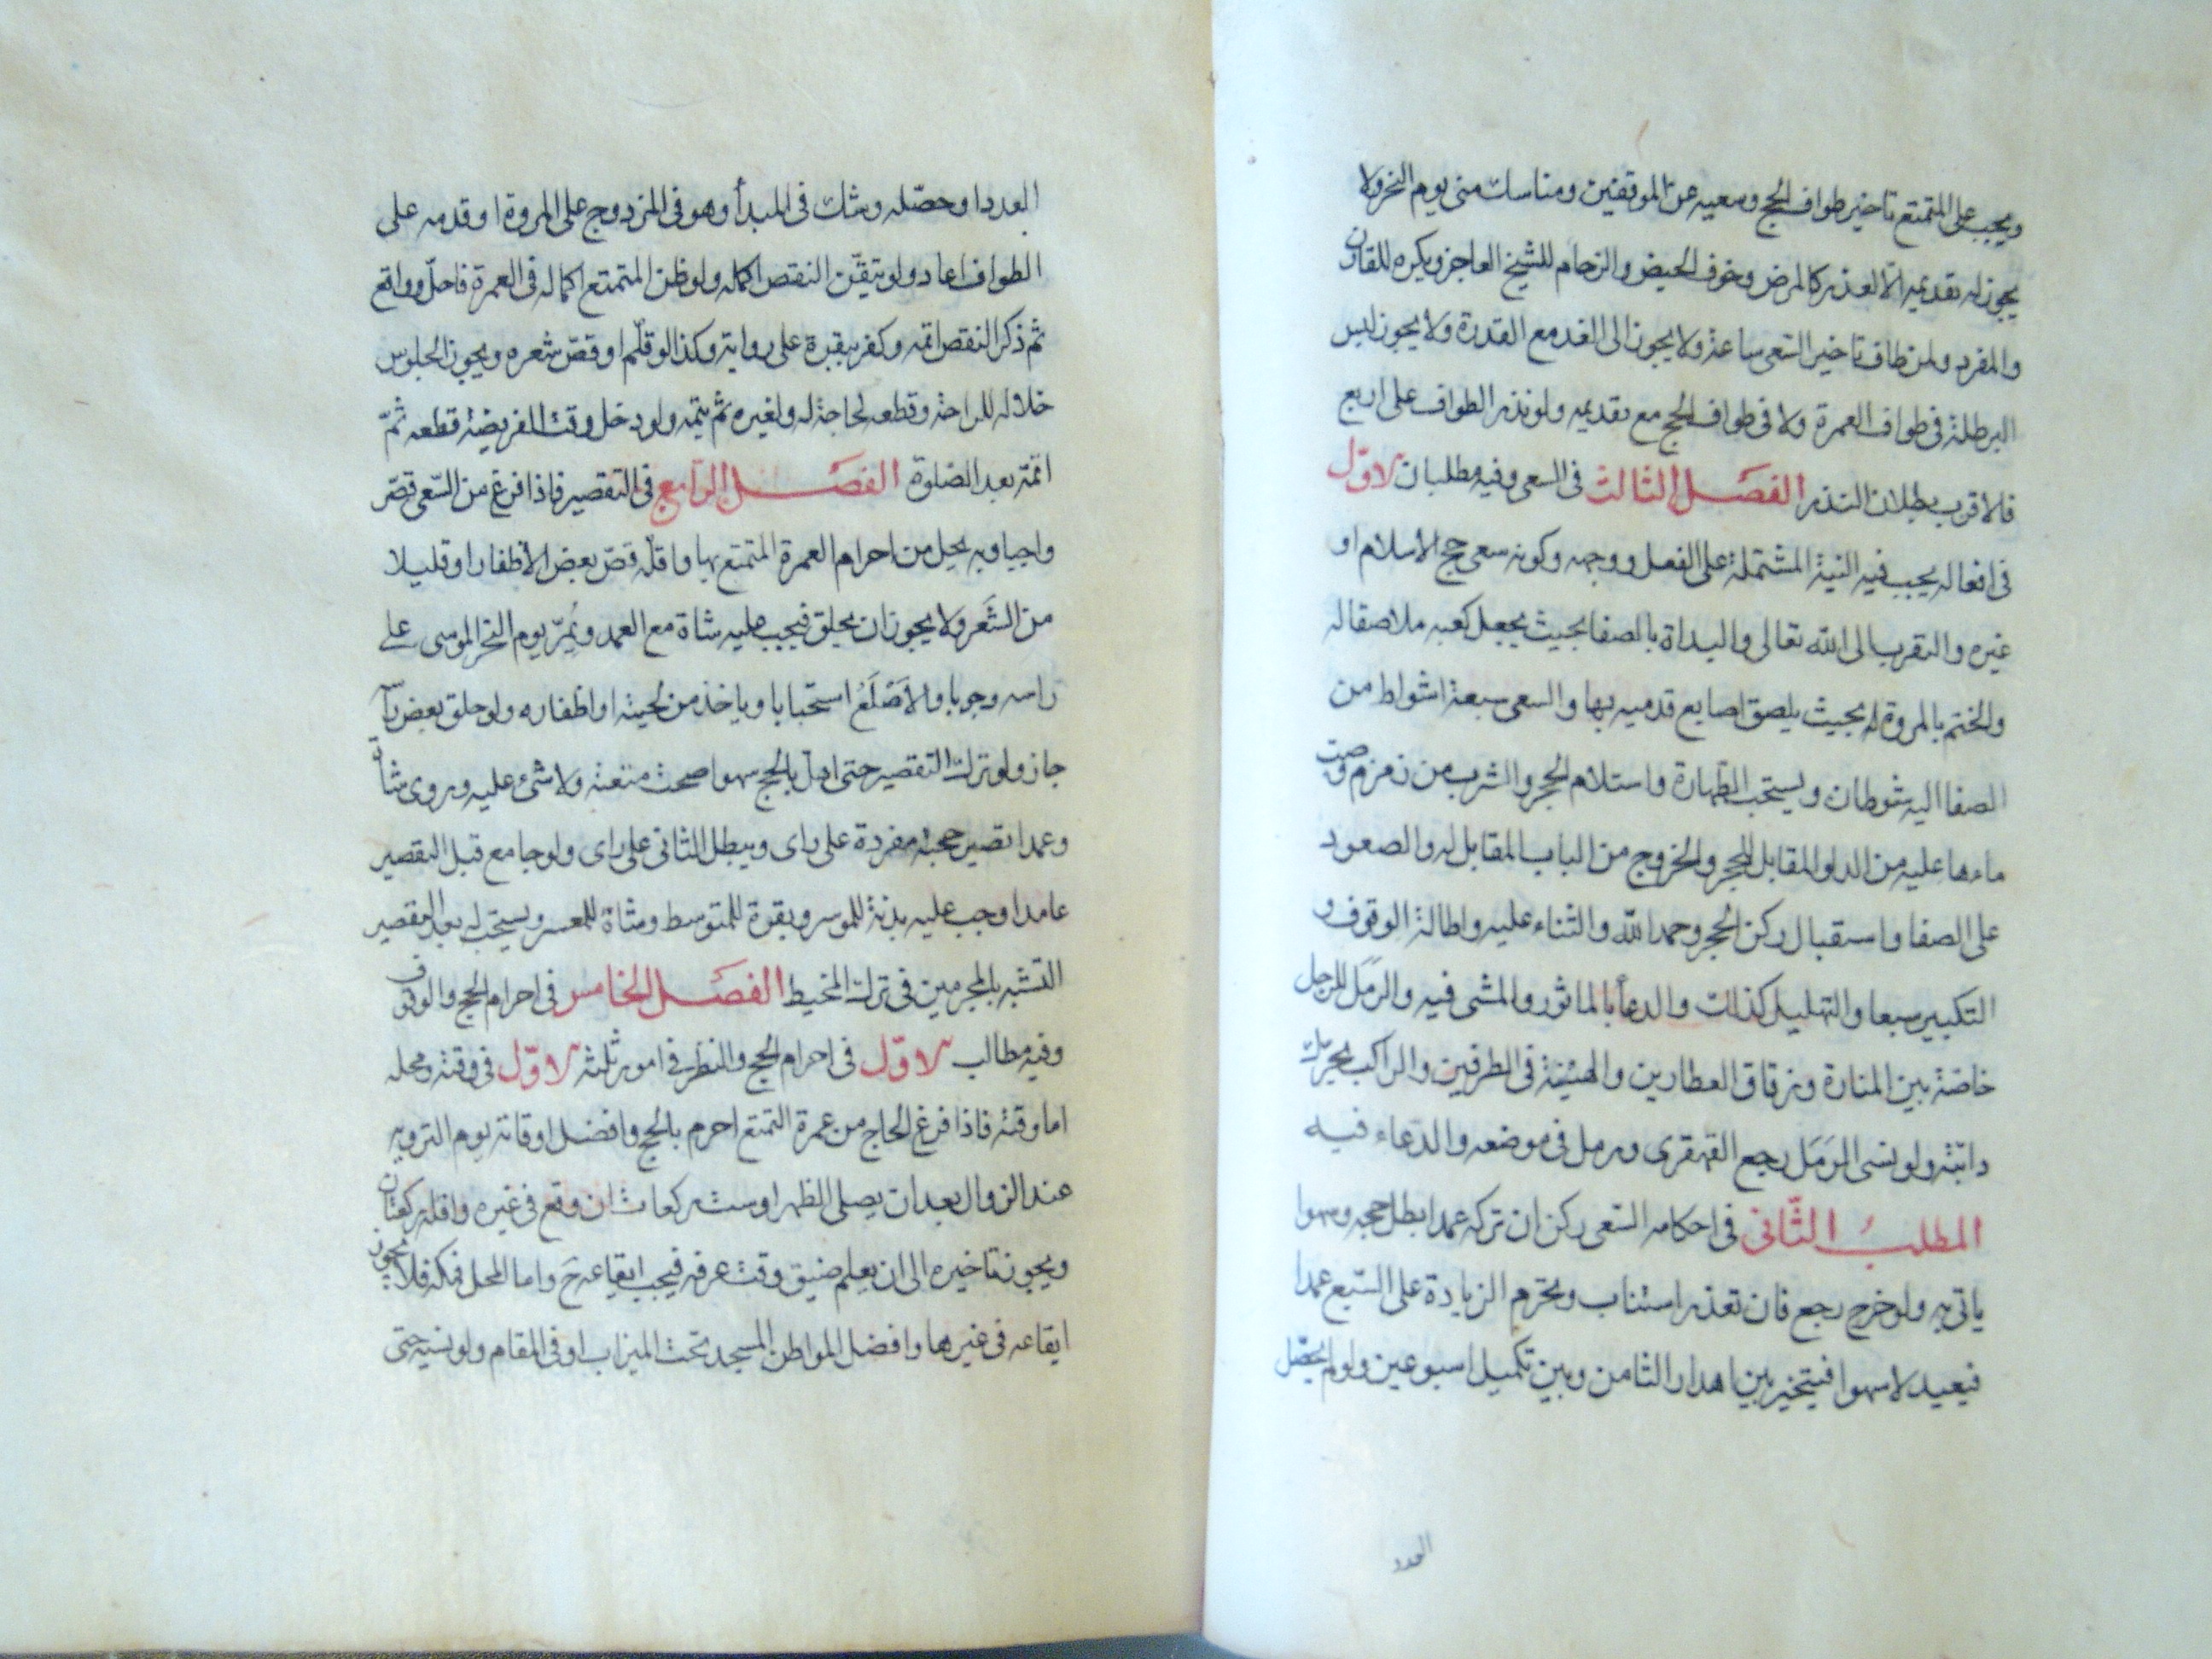 ويجب على المتمتع تاخير طواف الحج وسعيه عن الموقفين ومناسك منى يوم النحر ولا
يجوز له تقديمه الا لعذر كالمرض وخوف الحيض والزحام للشيخ العاجز ويكره للقارن
والمفرد ولمن طاف تاخير السعى ساعة ولا يجوز الى الغد مع القدرة ولا يجوز لبس
البرطلة فى طواف العمرة ولا فى طواف الحج مع تقديمه ولو نذر الطواف على اربع
فالاقرب بطلان النذر الفصل الثالث فى السعى وفيه مطلبان الاول
فى افعاله يجب فيه النية المشتملة على الفعل ووجهه وكونه سعى حج الاسلام او
غيره والتقرب الى الله تعالى والبداة بالصفا بحيث يجعل كعبه ملاصقا له
والختم بالمروة بحيث يلصق اصابع قدميه بها والسعى سبعة اشواط من
الصفا اليه شوطان ويستحب الطهارة واستلام الحجر والشرب من زمزم وصب
ماءها عليه من الدلو المقابل للحجر والخروج من الباب المقابل له والصعود
على الصفا واستقبال ركن الحجر وحمد الله والثناء عليه واطالة الوقوف و
التكبير سبعا والتهليل كذلك والدعأ بالماثور والمشى فيه والرمل للرجل
خاصة بين المنارة وزقاق العطارين والهيئة فى الطرفين والراكب يحرك
دابته ولو نسى الرمل رجع القهقرى ورمل فى موضعه والدعاء فيه
المطلب الثانى فى احكامه السعى ركن ان تركه عمدا بطل حجه وسهوا
ياتى به ولو خرج رجع فان تعذر استناب ويحرم الزيادة على السبع عمدا
فيعيد لا سهوا فيتخير بين اهدار الثامن وبين تكميل اسبوعين ولو لم يحصل
العدد
العدد او حصله وشك فى المبدأ وهو فى المزدوج على المروة او قدمه على
الطواف اعاد ولو تيقن النقص اكمله ولو ظن المتمتع اكماله فى العمرة فاحل وواقع
ثم ذكر النقص اتمه وكفر ببقرة على رواية وكذا لو قلم او قص شعره ويجوز الجلوس
خلاله للراحة وقطعه لحاجة له ولغيره ثم يتمه ولو دخل وقت الفريضة قطعه ثم
اتمه بعد الصلوة الفصل الرابع فى التقصير فاذا فرغ من السعى قصر
واجبا وبه يحل من احرام العمرة المتمتع بها واقله قص بعض الاظفار او قليلا
من الشعر ولا يجوز ان يحلق فيجب عليه شاة مع العمد ويمر يوم النحر الموسى على
راسه وجوبا والاصلع استحبابا وياخذ من لحيته او اظفاره ولو حلق بعض راسه
جاز ولو ترك التقصير حتى اهل بالحج سهوا صحت متعته ولا شئ عليه وروى شاة
وعمدا تصير حجته مفردة على راى ويبطل الثانى على راى ولو جامع قبل التقصير
عامدا وجب عليه بدنة للموسر وبقرة للمتوسط وشاة للمعسر ويستحب له بعد التقصير
التشبه بالمحرمين فى ترك المخيط الفصل الخامس فى احرام الحج والوقوف
وفيه مطالب الاول فى احرام الحج والنظر فى امور ثلثه الاول فى وقته ومحله
اما وقته فاذا فرغ الحاج من عمرة التمتع احرم بالحج وافضل اوقاته يوم التروية
عند الزوال بعد ان يصلى الظهر او ست ركعات ان وقع فى غيره واقله ركعتان
ويجوز تاخيره الى ان يعلم ضيق وقت عرفه فيجب ايقاعه ح واما المحل فمكه فلا يجوز
ايقاعه فى غيرها وافضل المواطن المسجد تحت الميزاب او فى المقام ولو نسيه حتى